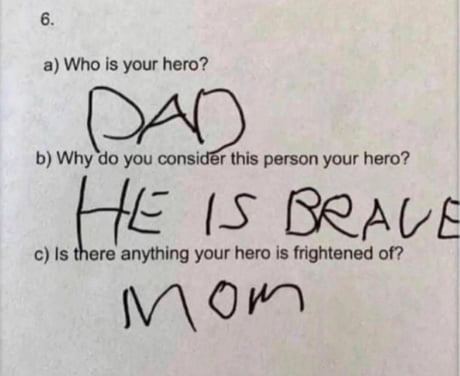 6.
a) Who is your hero?
DAD
b) Why do you consider this person your hero?
HE IS BRAVE
c) Is there anything your hero is frightened of?
MOM